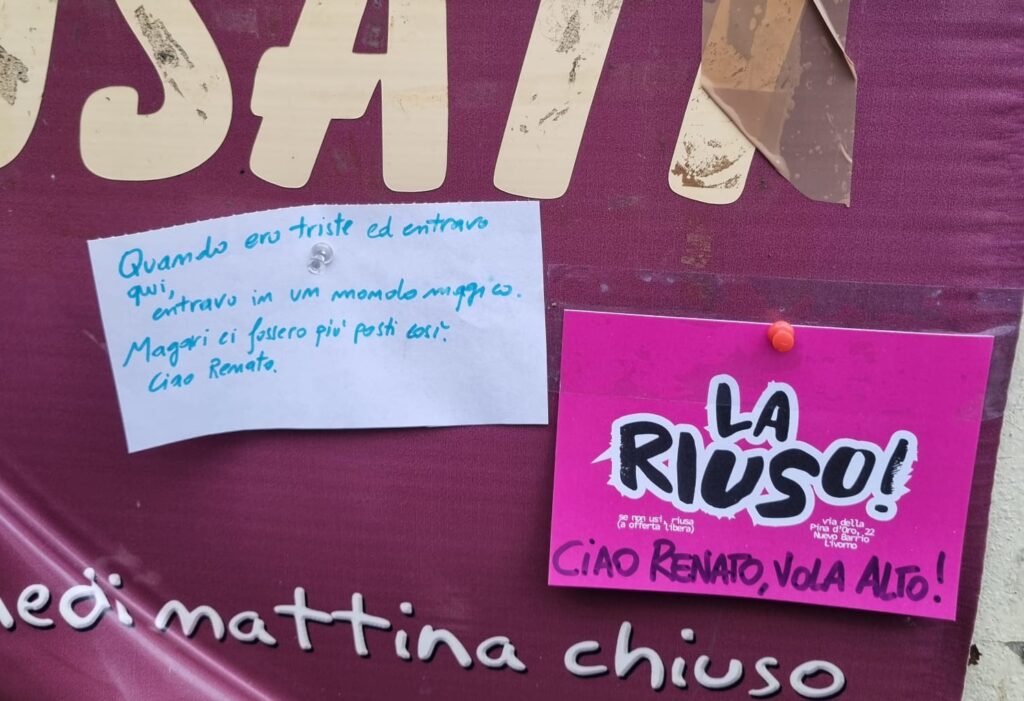 USATI
Quando ero triste ed entravo
qui,
entravo in un mondo magico.
Magari ci fossero più posti così.
Ciao Renato.
LA
RIUSO!
se non usi, riusa
(a offerta libera)
via della
Pina d'Oro, 22
Nuevo Barrio
Livorno
CIAO RENATO, VOLA ALTO!
nedì mattina chiuso